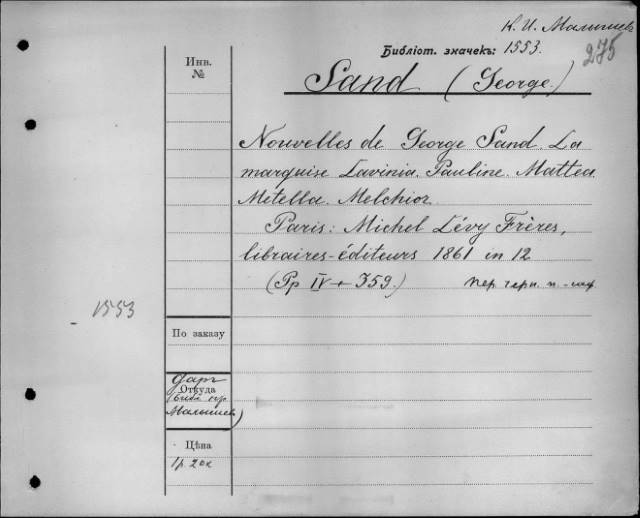 К. И. Малышев
Библіот. значекъ: 1553.
275
Инв.
№
Sand (George.)
Nouvelles de George Sand. La
marquise Lavinia. Pauline. Mattea
Metella. Melchior
Paris: Michel Lévy Frères,
libraires-éditeurs 1861 in 12
(Pp IV + 359.)
пер. черн. п.-
1553
По заказу
даръ
Откуда
Малышев)
Цѣна
1 р. 20 к